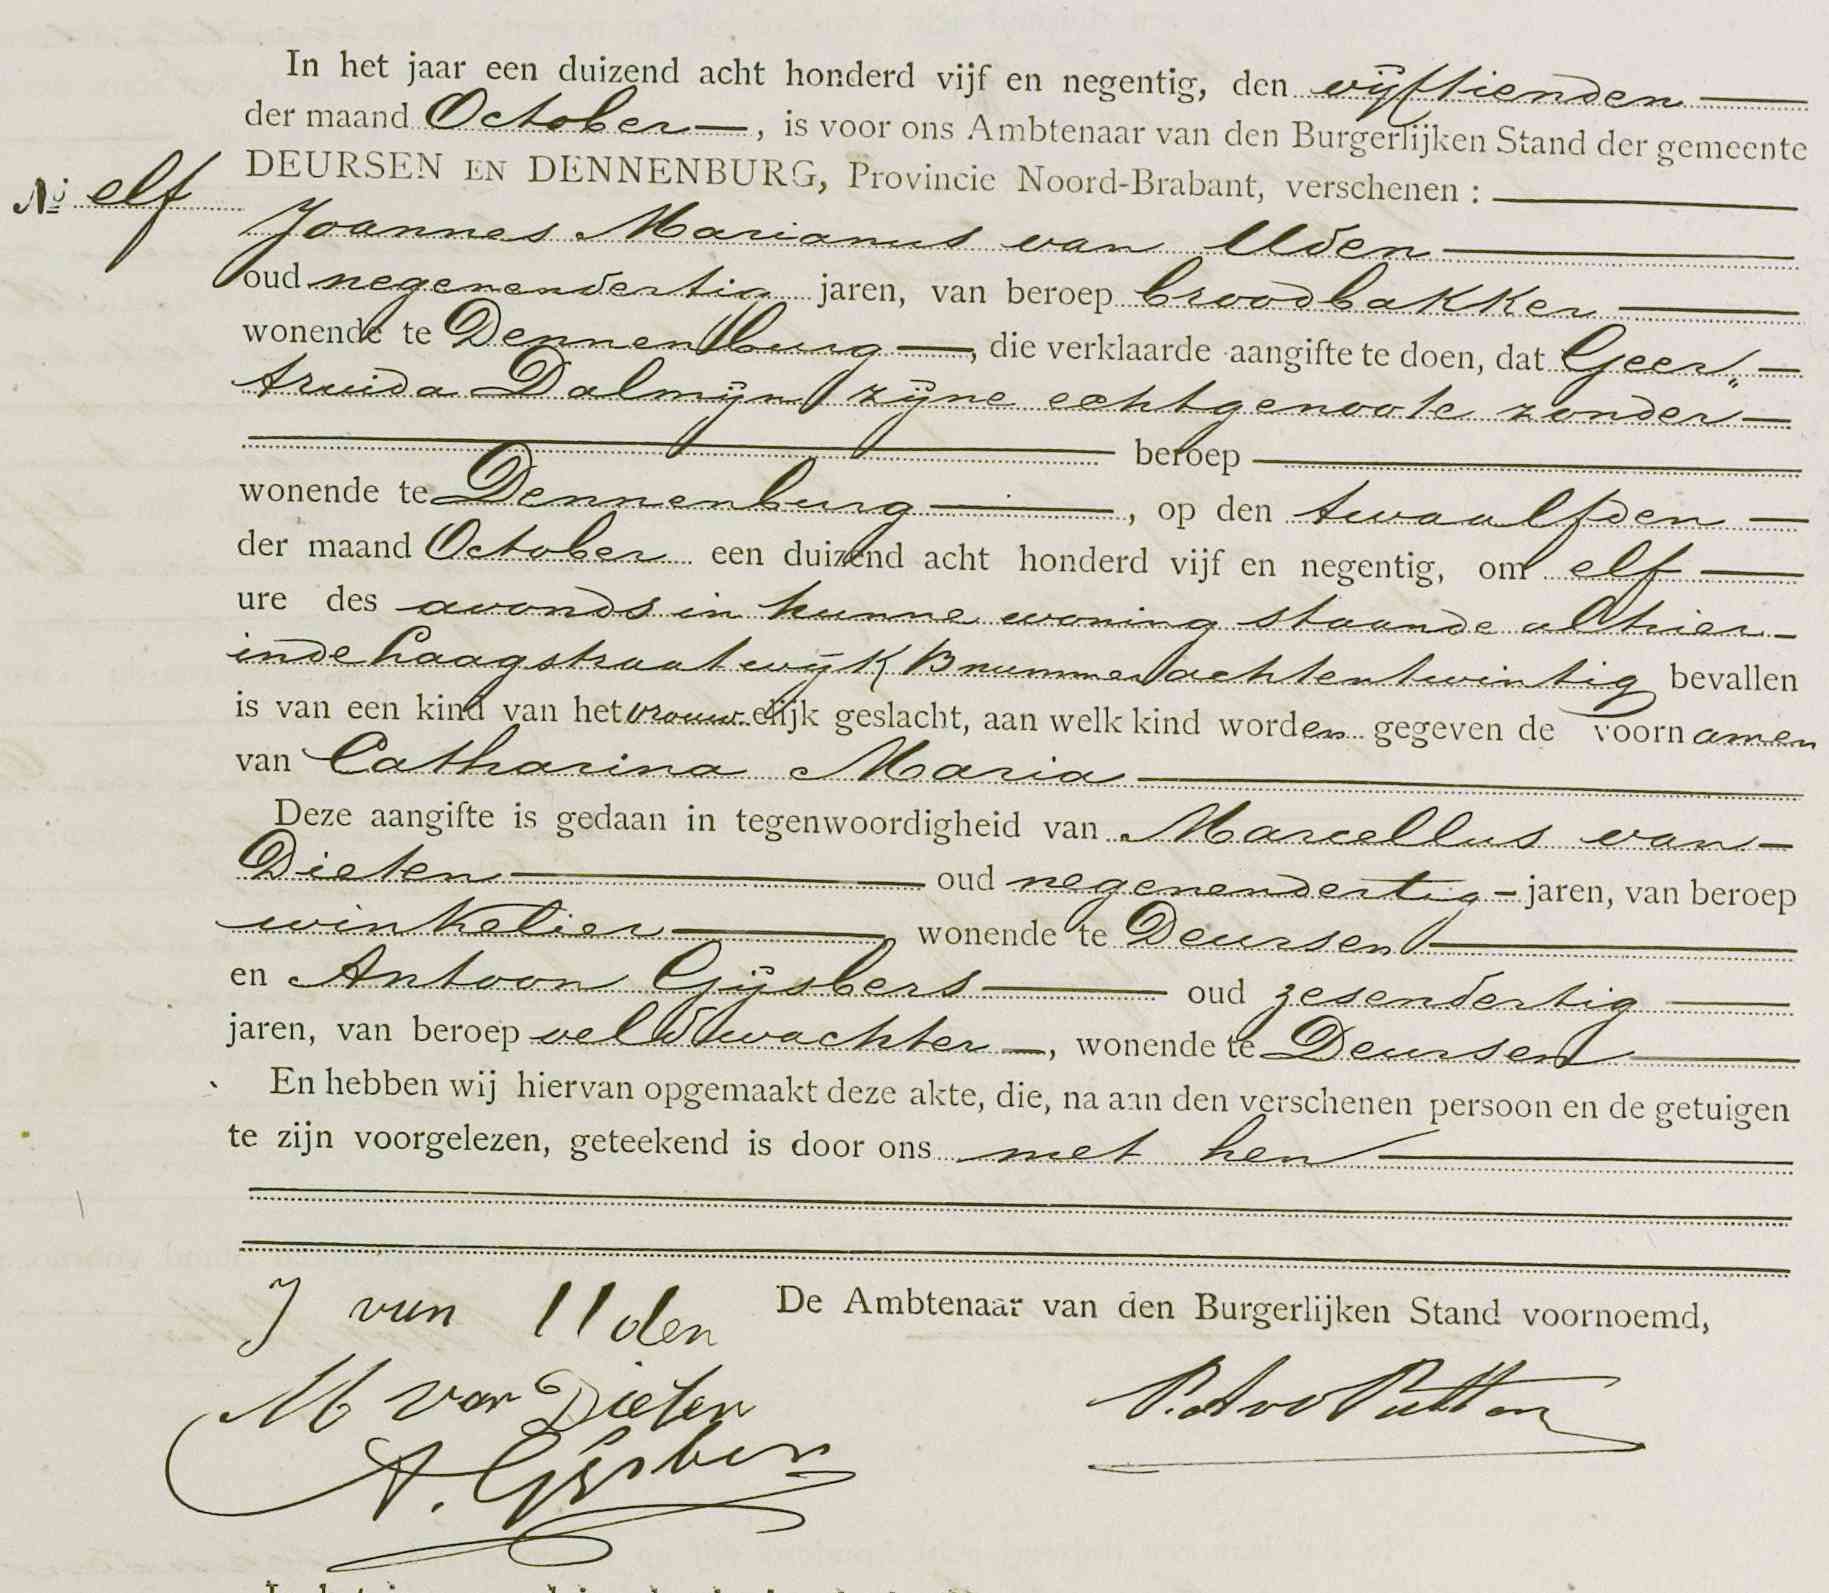 In het jaar een duizend acht honderd vijf en negentig, den vijftienden
der maand October, is voor ons Ambtenaar van den Burgerlijken Stand der gemeente
No elf
DEURSEN EN DENNENBURG, Provincie Noord-Brabant, verschenen:
Joannes Marianus van Uden
oud negenendertig jaren, van beroep broodbakker
wonende te Dennenburg, die verklaarde aangifte te doen, dat Geer„
truida Dalmijn zijne echtgenoote zonder
beroep
wonende te Dennenburg, op den twaalfden
der maand October een duizend acht honderd vijf en negentig, om elf
ure des avonds in hunne woning staande alhier
in de Haagstraat wijk B nummer achtentwintig bevallen
is van een kind van het vrouwelijk geslacht, aan welk kind worden gegeven de voornamen
van Catharina Maria
Deze aangifte is gedaan in tegenwoordigheid van Marcellus van
Dieten oud negenendertig jaren, van beroep
winkelier wonende te Deursen
en Antoon Gijsbers oud zesendertig
jaren, van beroep veldwachter, wonende te Deursen
En hebben wij hiervan opgemaakt deze akte, die, na aan den verschenen persoon en de getuigen
te zijn voorgelezen, geteekend is door ons met hen
J van Uden
De Ambtenaar van den Burgerlijken Stand voornoemd,
M van Dieten
P. A v d Putten
A. Gijsbers